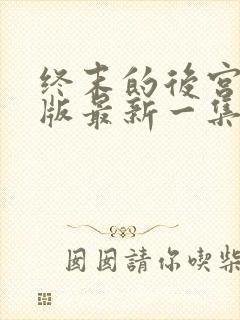 终末的後宫
版最新一集
囡囡請你喫柴